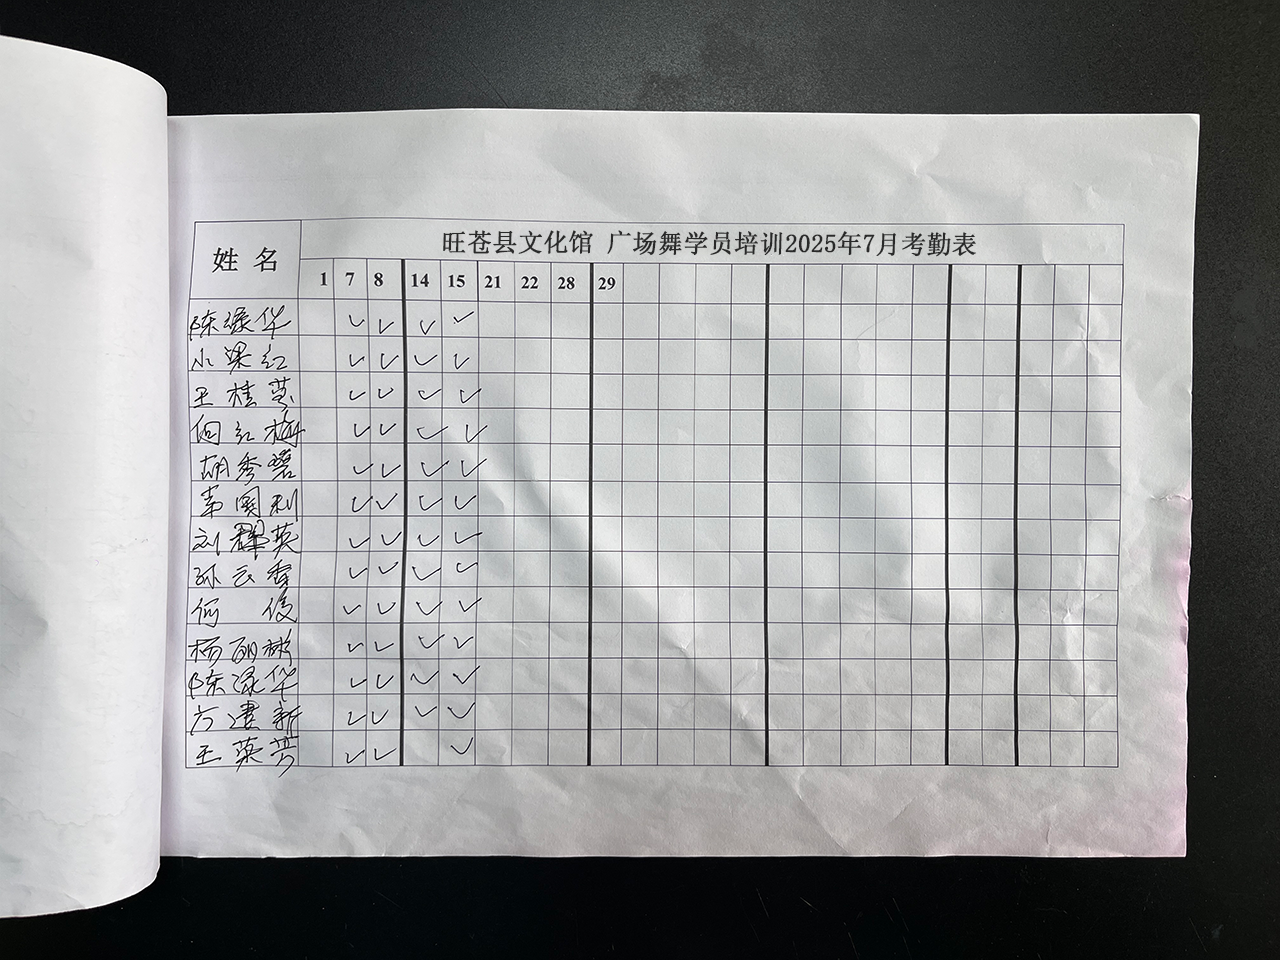 旺苍县文化馆 广场舞学员培训2025年7月考勤表
姓名 1 7 8 14 15 21 22 28 29
陈渌华 ✓ ✓ ✓ ✓
小梁红 ✓ ✓ ✓ ✓
王桂英 ✓ ✓ ✓ ✓
向红梅 ✓ ✓ ✓ ✓
胡秀碧 ✓ ✓ ✓ ✓
国利 ✓ ✓ ✓ ✓
刘群英 ✓ ✓ ✓ ✓
孙云香 ✓ ✓ ✓ ✓
何俊 ✓ ✓ ✓ ✓
杨丽彬 ✓ ✓ ✓ ✓
陈渌华 ✓ ✓ ✓ ✓
方建新 ✓ ✓ ✓ ✓
王英芳 ✓ ✓ ✓